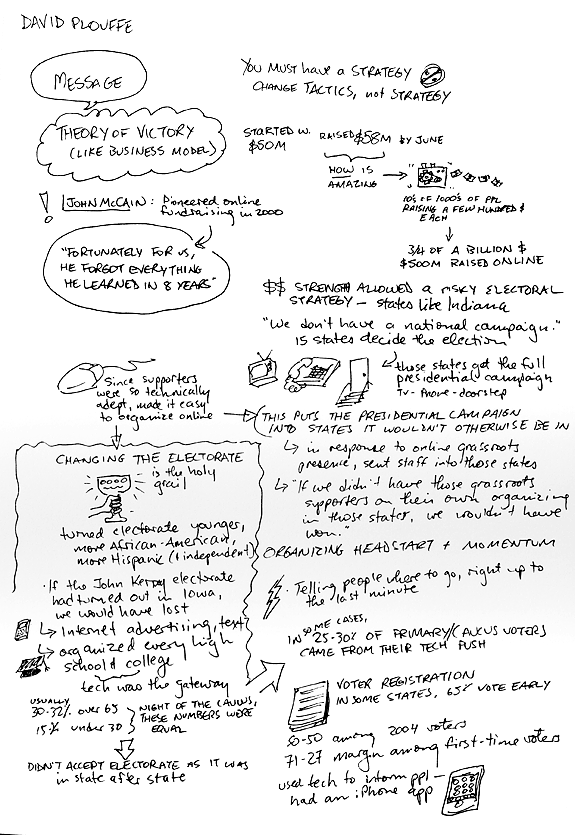 DAVID PLOUFFE
MESSAGE
THEORY OF VICTORY
(LIKE BUSINESS MODEL)
YOU MUST HAVE A STRATEGY
CHANGE TACTICS, not STRATEGY
STARTED W. $50M
RAISED $58M by JUNE
HOW IS AMAZING
10's OF 1000's OF PPL
RAISING A FEW HUNDRED $
EACH
3/4 OF A BILLION $
$500M RAISED ONLINE
! JOHN McCAIN: Pioneered online
fundraising in 2000
"FORTUNATELY FOR US,
HE FORGOT EVERYTHING
HE LEARNED IN 8 YEARS"
$$ STRENGTH ALLOWED A RISKY ELECTORAL
STRATEGY – states like Indiana
"We don't have a national campaign."
15 states decide the election
those states got the full
presidential campaign
TV - Phone - doorstep
Since supporters
were so technically
adept, made it easy
to organize online
THIS PUTS THE PRESIDENTIAL CAMPAIGN
INTO STATES IT WOULDN'T OTHERWISE BE IN
in response to online grassroots
presence, sent staff into those states
"If we didn't have those grassroots
supporters on their own organizing
in those states, we wouldn't have
won."
CHANGING THE ELECTORATE
is the holy
grail
turned electorate younger,
more African-American,
more Hispanic (+ independent)
• If the John Kerry electorate
had turned out in Iowa,
we would have lost
Internet advertising, text
organized every high
school & college
tech was the gateway
USUALLY
30-32% over 65
15% under 30
NIGHT OF THE CAUCUS,
THESE NUMBERS WERE
EQUAL
DIDN'T ACCEPT ELECTORATE AS IT WAS
in state after state
ORGANIZING HEADSTART + MOMENTUM
• Telling people where to go, right up to
the last minute
IN SOME CASES,
25-30% OF PRIMARY/CAUCUS VOTERS
CAME FROM THEIR TECH PUSH
VOTER REGISTRATION
IN SOME STATES, 65% VOTE EARLY
50-50 among 2004 voters
71-27 margin among first-time voters
used tech to inform ppl
had an iPhone app